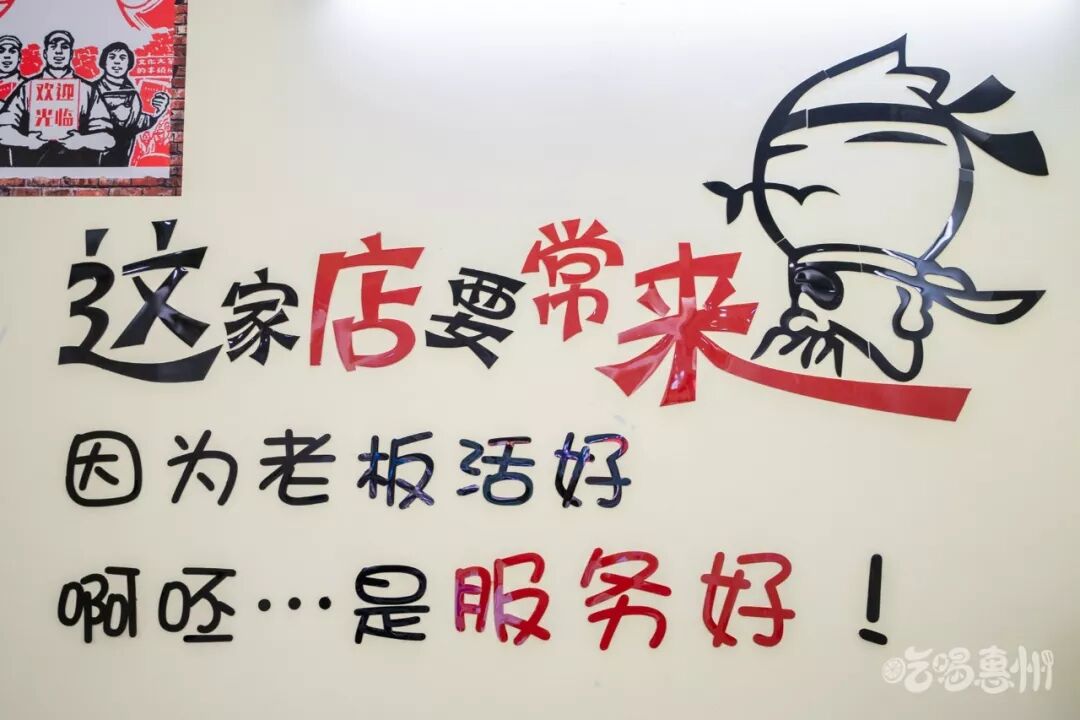 欢迎
光临
这家店要常来
因为老板活好
啊呸…是服务好！
吃喝惠州